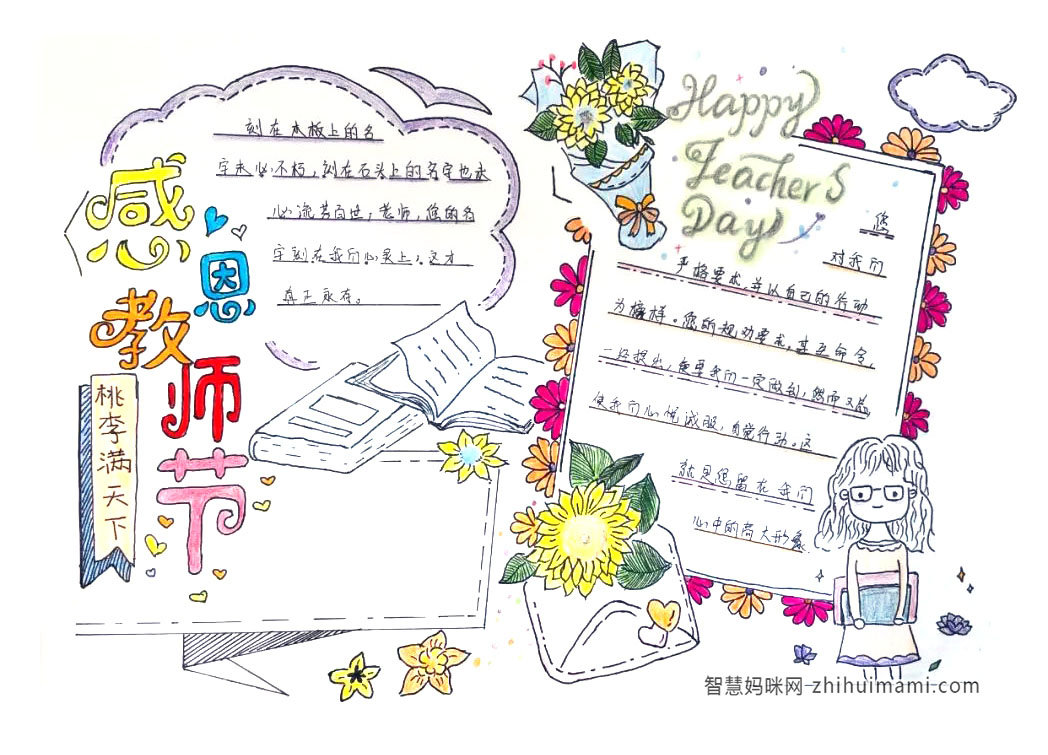 感恩教师节
桃李满天下
刻在木板上的名
字未必不朽，刻在石头上的名字也未
必流芳百世；老师，您的名
字刻在我们心灵上，这才
真正永存。
Happy
Teacher's
Day
您
对我们
严格要求，并以自己的行动
为榜样。您的规劝要求，甚至命令，
一经提出，便要我们一定做到，然而又总
使我们心悦诚服，自觉行动。这
就是您留在我们
心中的高大形象
智慧妈咪网-zhihuimami.com